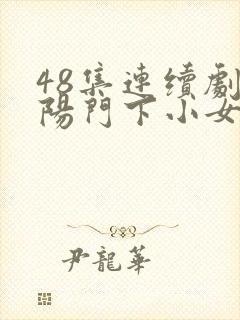 48集連续劇
陽門下小女
尹龍華